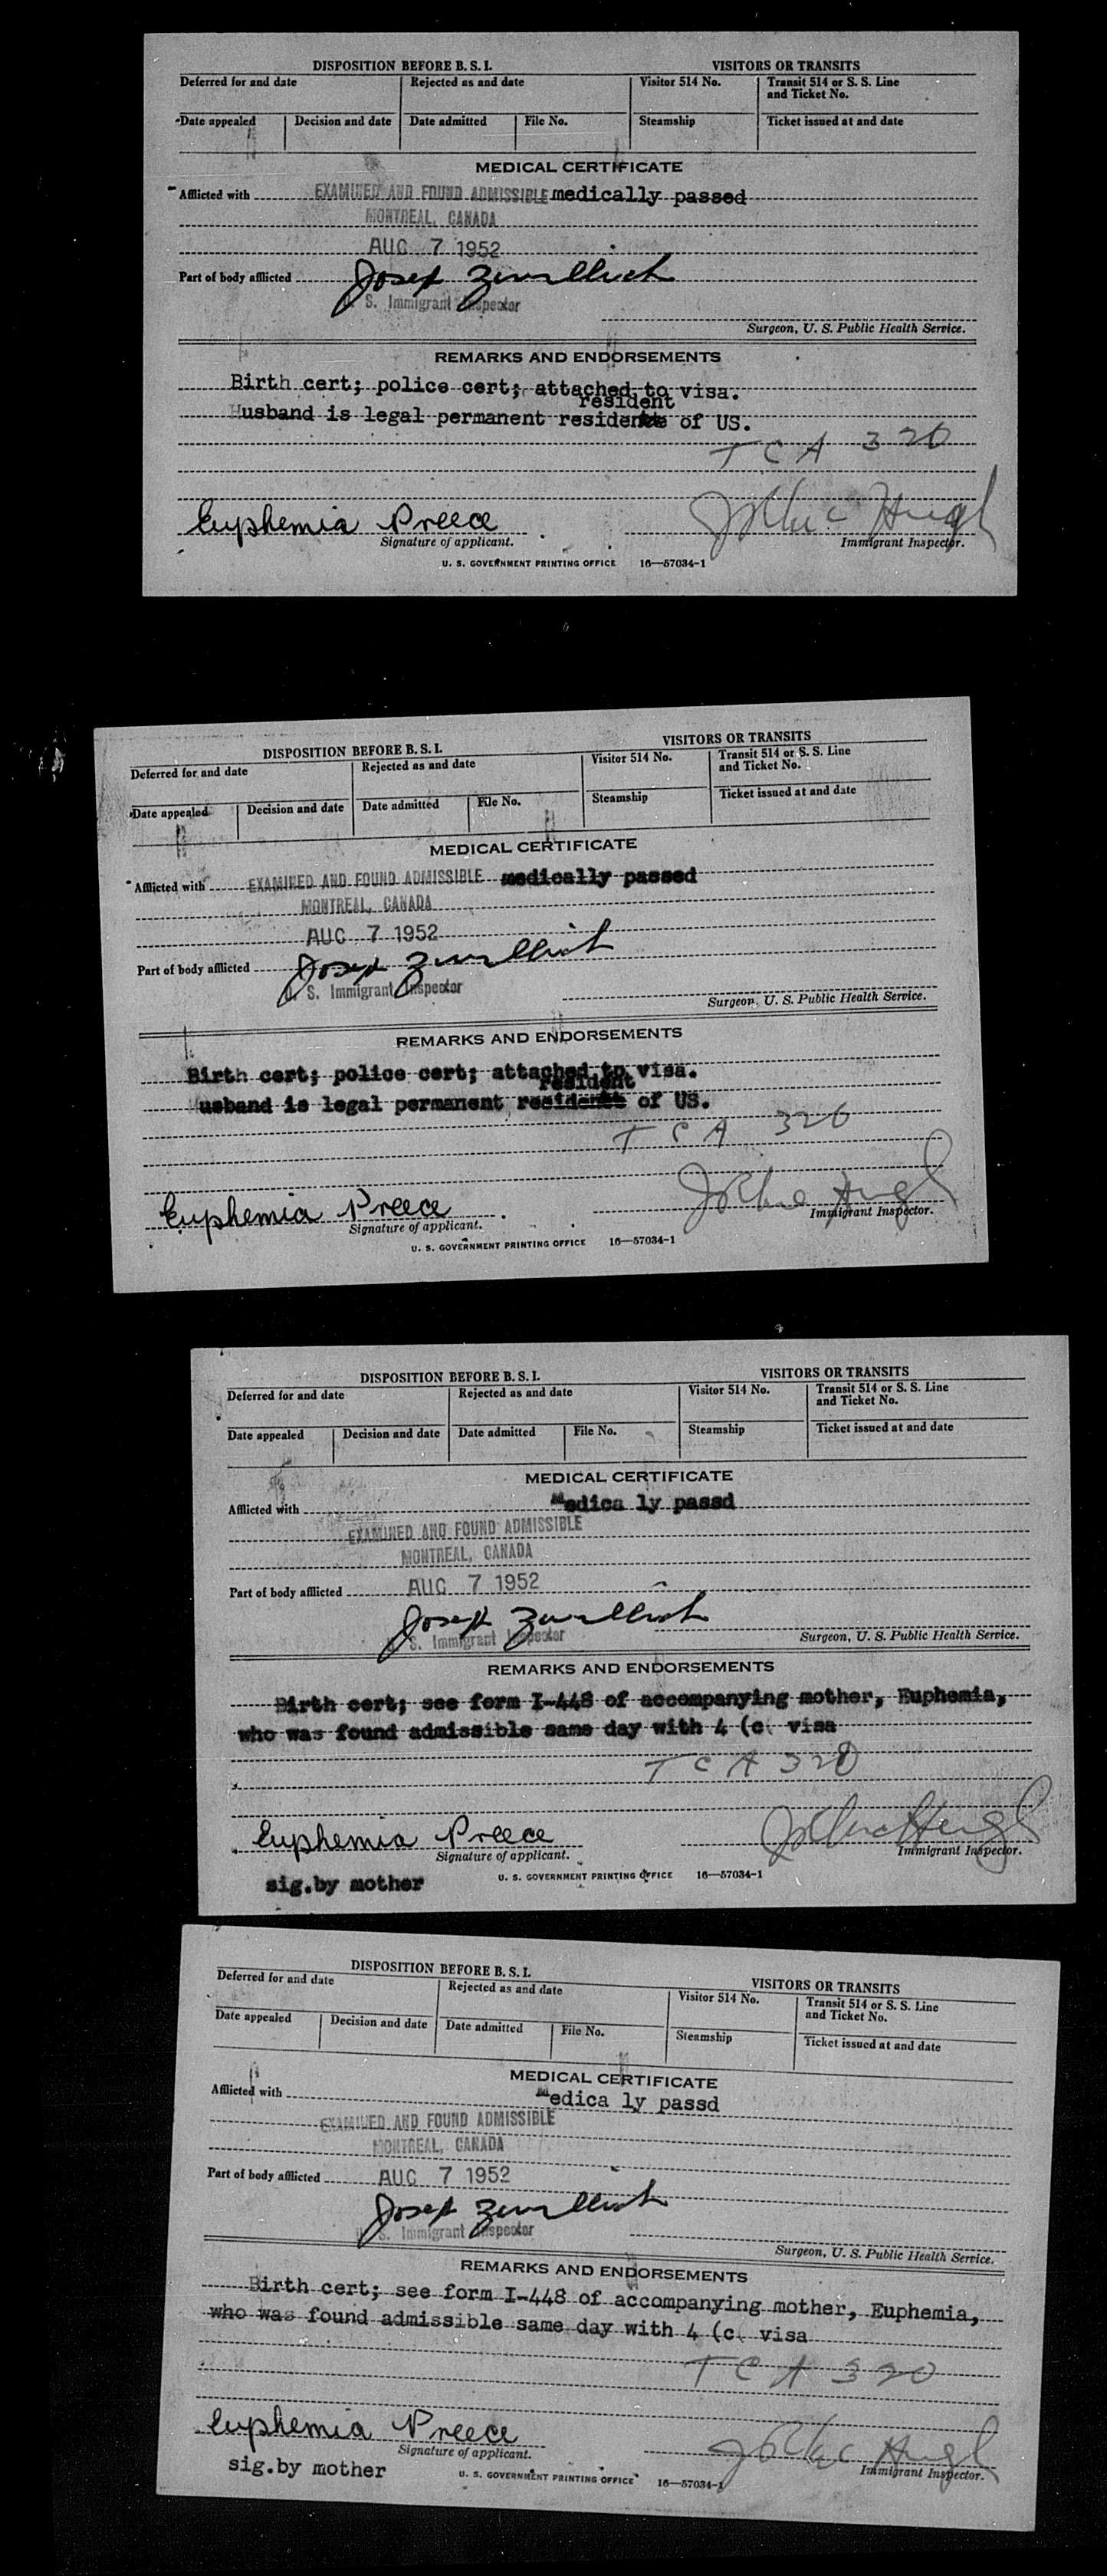 DISPOSITION BEFORE B. S. I. VISITORS OR TRANSITS
Deferred for and date Rejected as and date Visitor 514 No. Transit 514 or S. S. Line and Ticket No.
Date appealed Decision and date Date admitted File No. Steamship Ticket issued at and date
MEDICAL CERTIFICATE
Afflicted with EXAMINED AND FOUND ADMISSIBLE medically passed
MONTREAL, CANADA
AUG 7 1952
Part of body afflicted Joseph
U. S. Immigrant Inspector
Surgeon, U. S. Public Health Service.
REMARKS AND ENDORSEMENTS
Birth cert; police cert; attached to visa.
resident
Husband is legal permanent of US.
T C A 320
Euphemia Preece
Signature of applicant. Immigrant Inspector.
U. S. GOVERNMENT PRINTING OFFICE 16—57034-1
DISPOSITION BEFORE B. S. I. VISITORS OR TRANSITS
Deferred for and date Rejected as and date Visitor 514 No. Transit 514 or S. S. Line and Ticket No.
Date appealed Decision and date Date admitted File No. Steamship Ticket issued at and date
MEDICAL CERTIFICATE
Afflicted with EXAMINED AND FOUND ADMISSIBLE medically passed
MONTREAL, CANADA
AUG 7 1952
Part of body afflicted Joseph
U. S. Immigrant Inspector
Surgeon, U. S. Public Health Service.
REMARKS AND ENDORSEMENTS
Birth cert; police cert; attached to visa.
resident
usband is legal permanent of US.
T C A 320
Euphemia Preece
Signature of applicant. Immigrant Inspector.
U. S. GOVERNMENT PRINTING OFFICE 16—57034-1
DISPOSITION BEFORE B. S. I. VISITORS OR TRANSITS
Deferred for and date Rejected as and date Visitor 514 No. Transit 514 or S. S. Line and Ticket No.
Date appealed Decision and date Date admitted File No. Steamship Ticket issued at and date
MEDICAL CERTIFICATE
Afflicted with Medica ly passd
EXAMINED AND FOUND ADMISSIBLE
MONTREAL, CANADA
Part of body afflicted AUG 7 1952
Joseph
U. S. Immigrant Inspector
Surgeon, U. S. Public Health Service.
REMARKS AND ENDORSEMENTS
Birth cert; see form I-448 of accompanying mother, Euphemia,
who was found admissible same day with 4 (c visa
T C A 320
Euphemia Preece
Signature of applicant. Immigrant Inspector.
sig.by mother U. S. GOVERNMENT PRINTING OFFICE 16—57034-1
DISPOSITION BEFORE B. S. I. VISITORS OR TRANSITS
Deferred for and date Rejected as and date Visitor 514 No. Transit 514 or S. S. Line and Ticket No.
Date appealed Decision and date Date admitted File No. Steamship Ticket issued at and date
MEDICAL CERTIFICATE
Afflicted with Medica ly passd
EXAMINED AND FOUND ADMISSIBLE
MONTREAL, CANADA
Part of body afflicted AUG 7 1952
Joseph
U. S. Immigrant Inspector
Surgeon, U. S. Public Health Service.
REMARKS AND ENDORSEMENTS
Birth cert; see form I-448 of accompanying mother, Euphemia,
who was found admissible same day with 4 (c visa
T C A 320
Euphemia Preece
Signature of applicant. Immigrant Inspector.
sig.by mother U. S. GOVERNMENT PRINTING OFFICE 16—57034-1